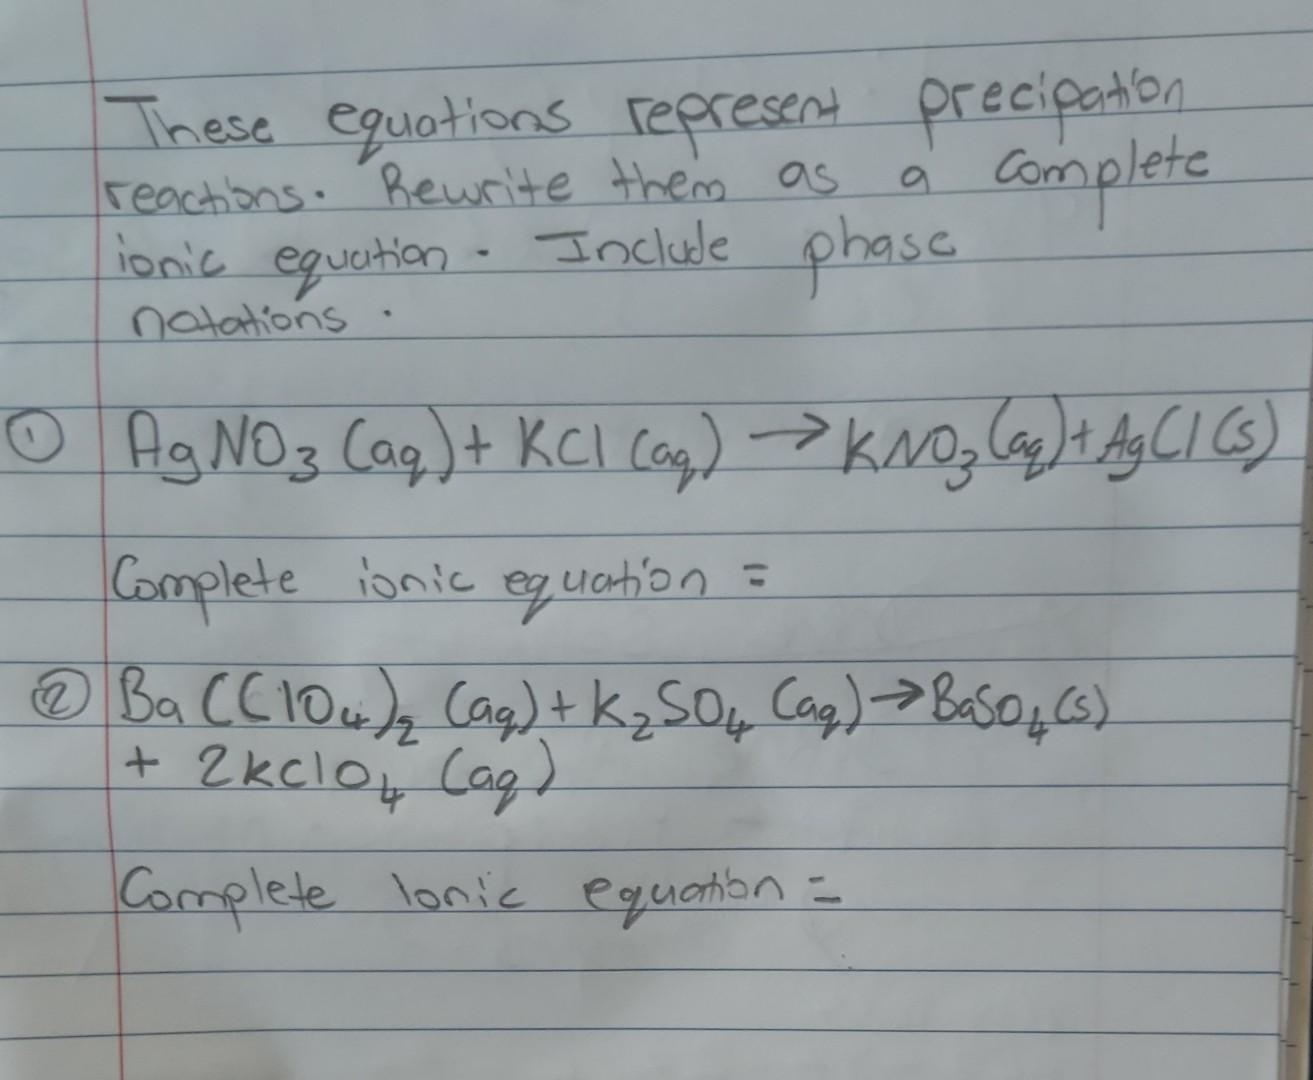 These equations represent precipation
reactions. Rewrite them as a complete
ionic equation. Include phase
notations.
① AgNO₃ (aq) + KCl (aq) → KNO₃ (aq) + AgCl (s)
Complete ionic equation =
② Ba(ClO₄)₂ (aq) + K₂SO₄ (aq) → BaSO₄ (s)
+ 2KClO₄ (aq)
Complete Ionic equation =